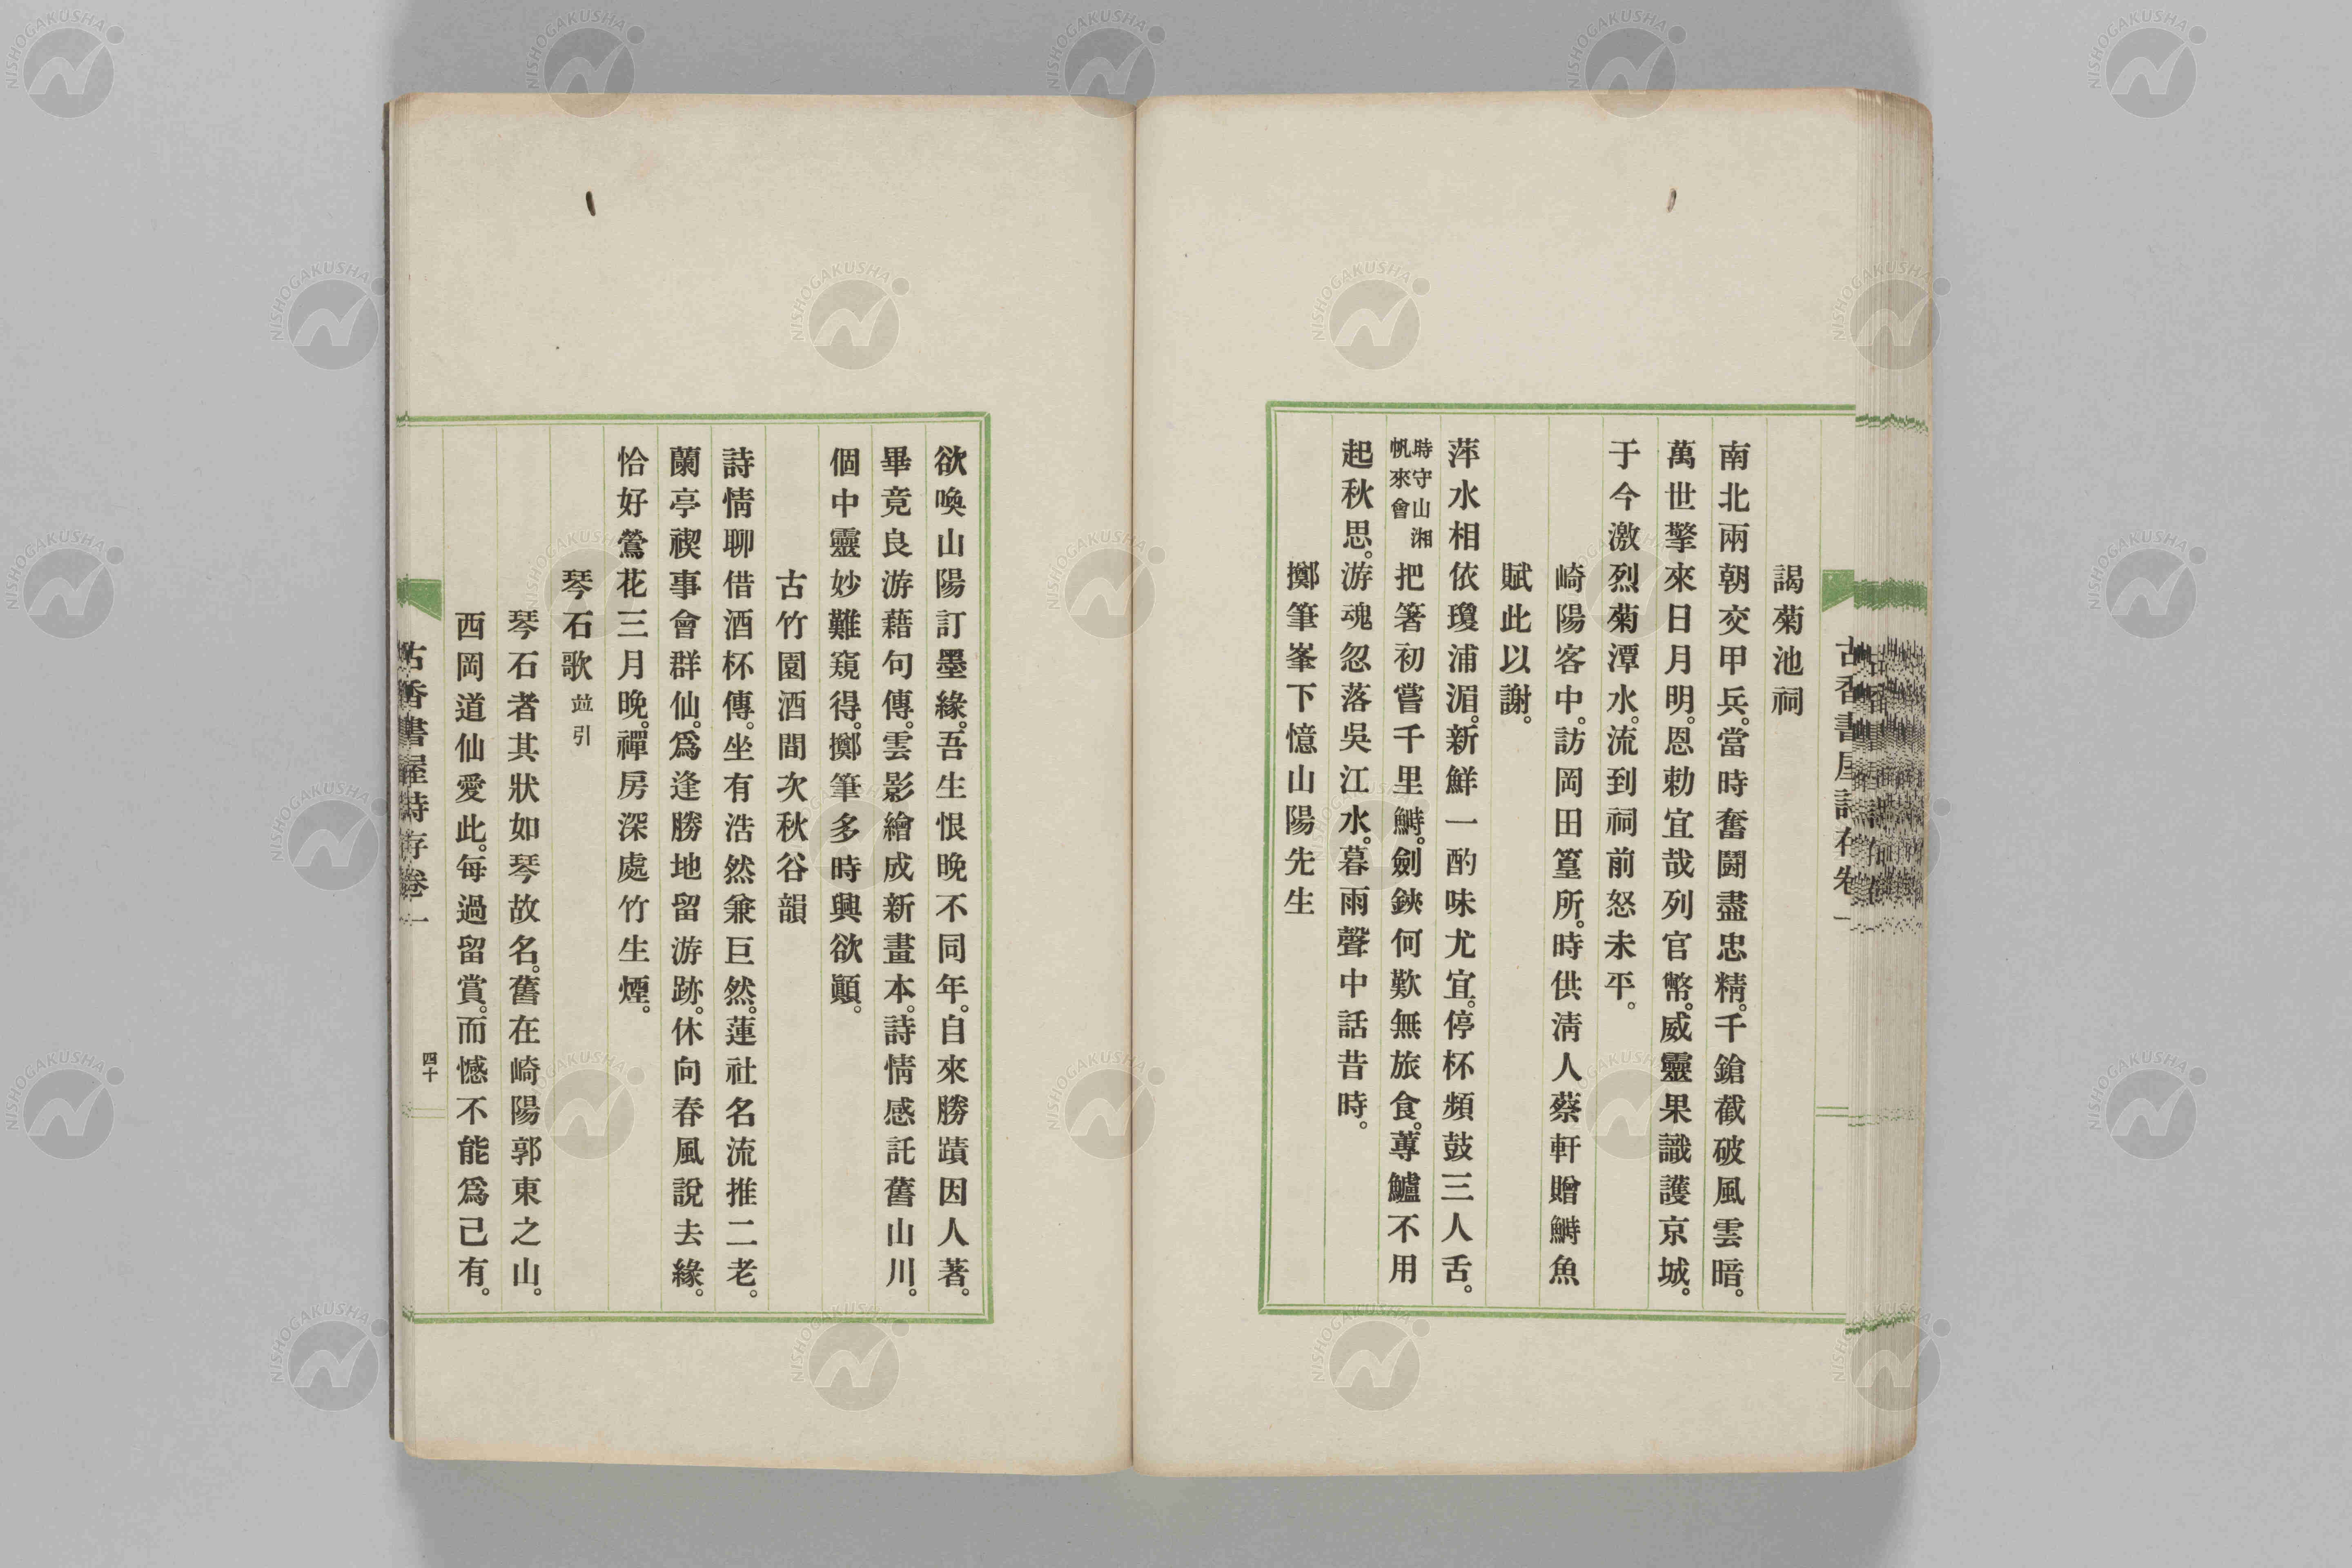 謁菊池祠
南北兩朝交甲兵。當時奮鬪盡忠精。千鎗截破風雲暗。
萬世擎來日月明。恩勅宜哉列官幣。威靈果識護京城。
于今激烈菊潭水。流到祠前怒未平。
崎陽客中。訪岡田篁所。時供淸人蔡軒贈鰣魚
賦此以謝。
萍水相依瓊浦湄。新鮮一酌味尤宜。停杯頻鼓三人舌。
時守山湘
帆來會
把箸初嘗千里鰣。劍鋏何歎無旅食。蓴鱸不用
起秋思。游魂忽落吳江水。暮雨聲中話昔時。
擲筆峯下憶山陽先生
古香書屋詩存卷一
欲喚山陽訂墨緣。吾生恨晚不同年。自來勝蹟因人著。
畢竟良游藉句傳。雲影繪成新畫本。詩情感託舊山川。
個中靈妙難窺得。擲筆多時興欲顚。
古竹園酒間次秋谷韻
詩情聊借酒杯傳。坐有浩然兼巨然。蓮社名流推二老。
蘭亭禊事會群仙。爲逢勝地留游跡。休向春風說去緣。
恰好鶯花三月晚。禪房深處竹生煙。
琴石歌 竝引
琴石者其狀如琴故名。舊在崎陽郭東之山。
西岡道仙愛此。每過留賞。而憾不能爲己有。
古香書屋詩存卷一
四十
NISHOGAKUSHA